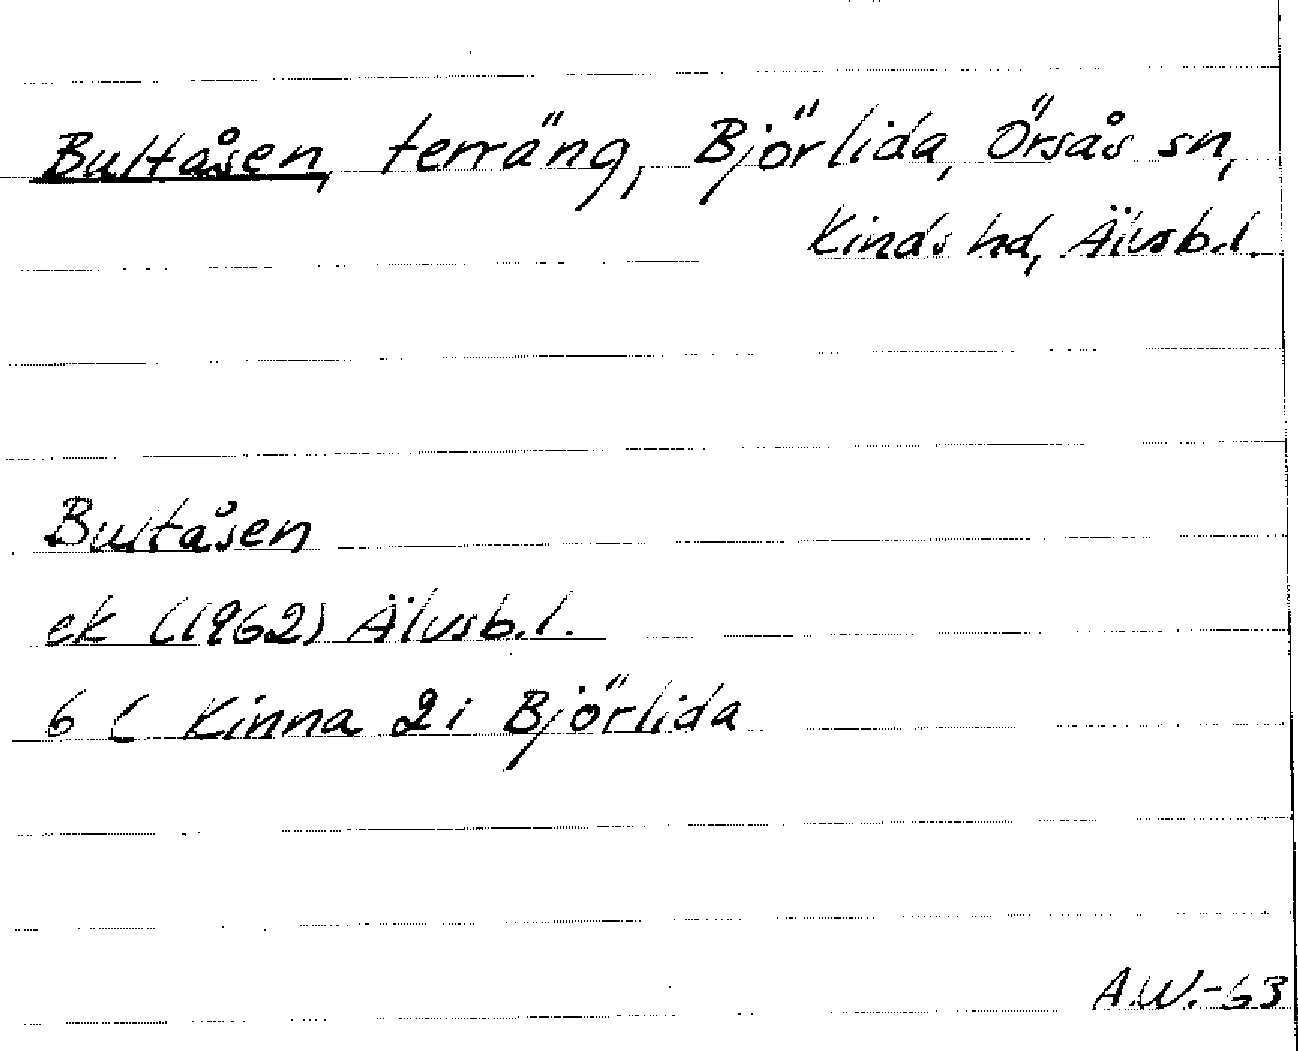 Bultåsen, terräng, Björlida, Örsås sn,
Kinds hd, Älvsb.l.
Bultåsen
ek (1962) Älvsb.l.
6 C Kinna 2i Björlida
A.W.-63